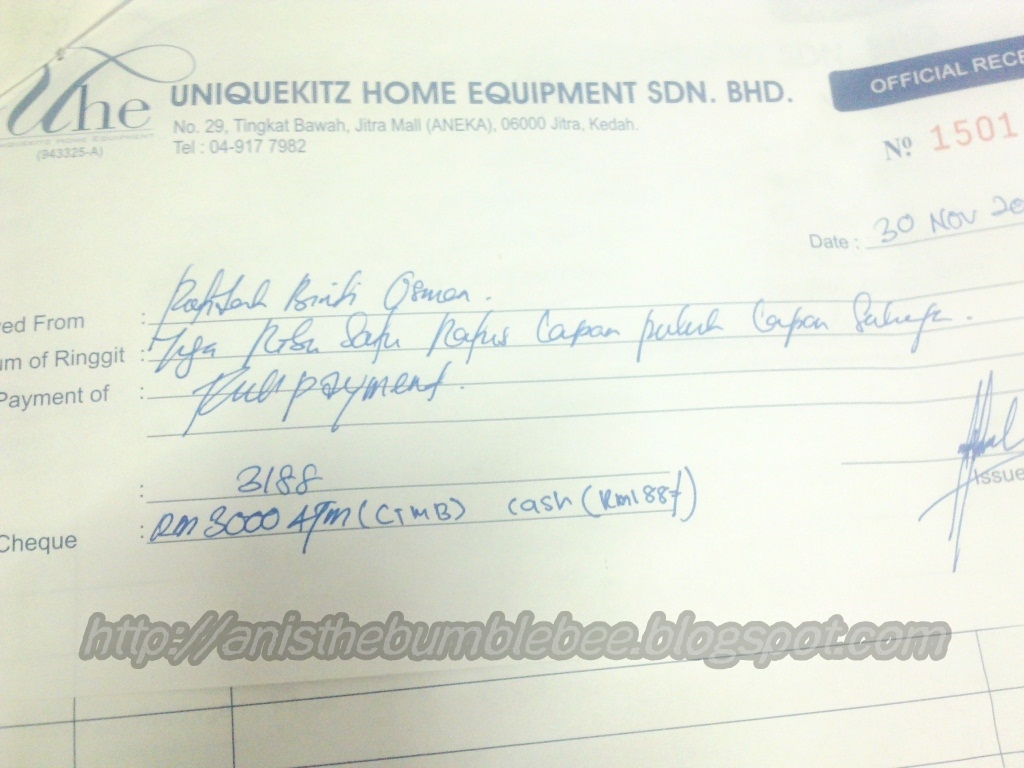 Uhe
UNIQUEKITZ HOME EQUIPMENT SDN. BHD.
No. 29, Tingkat Bawah, Jitra Mall (ANEKA), 06000 Jitra, Kedah.
Tel : 04-917 7982
UNIQUEKITZ HOME EQUIPMENT
(943325-A)
OFFICIAL RECE
Nº 1501
Date : 30 NOV 20
ved From : Binti Osman.
um of Ringgit : Tiga Ribu Satu Ratus Lapan puluh Lapan Sahaja.
Payment of : Full payment.
: 3188
Cheque : RM 3000 ATM (CIMB) cash (RM188/)
Issue
http://anisthebumblebee.blogspot.com